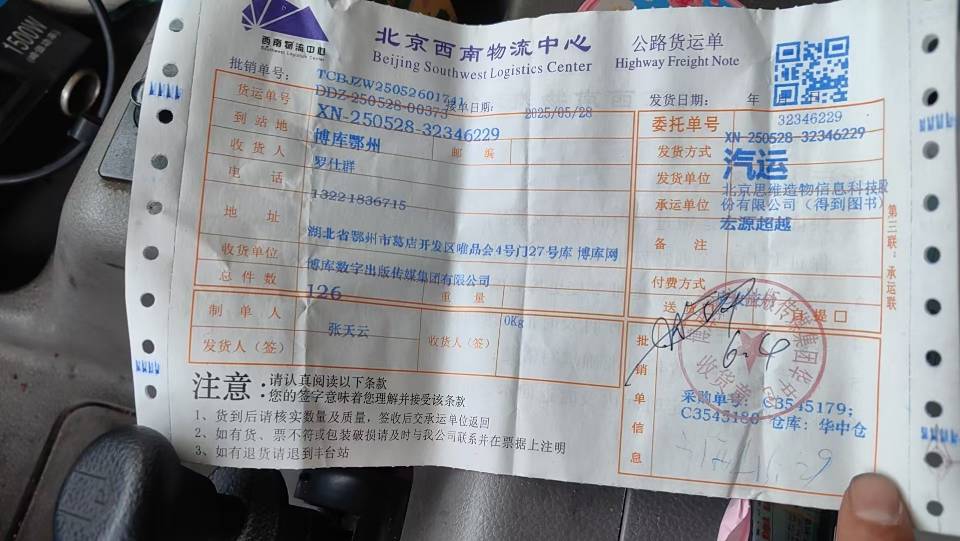 1500W
西南物流中心
Southwest Logistics Center
北京西南物流中心
Beijing Southwest Logistics Center
公路货运单
Highway Freight Note
批销单号： TCBJZW25052601741
货运单号 DDZ-250528-00373
接单日期： 2025/05/28
发货日期： 年 月 日
XN-250528-32346229
到站地 博库鄂州
邮编
收货人 罗仕群
电话 13221836715
地址 湖北省鄂州市葛店开发区唯品会4号门27号库 博库网
收货单位 博库数字出版传媒集团有限公司
总件数 126
重量 0Kg
制单人 张天云
发货人（签）
收货人（签）
委托单号 32346229
XN-250528-32346229
发货方式 汽运
发货单位 北京思维造物信息科技股份有限公司（得到图书）
承运单位 宏源超越
备注
付费方式
送货
自提□
批销单信息
6.4
收货章
采购单号：C3545179；
C3545180 仓库：华中仓
第三联：承运联
注意：
请认真阅读以下条款
您的签字意味着您理解并接受该条款
1、货到后请核实数量及质量，签收后交承运单位返回
2、如有货、票不符或包装破损请及时与我公司联系并在票据上注明
3、如有退货请退到丰台站